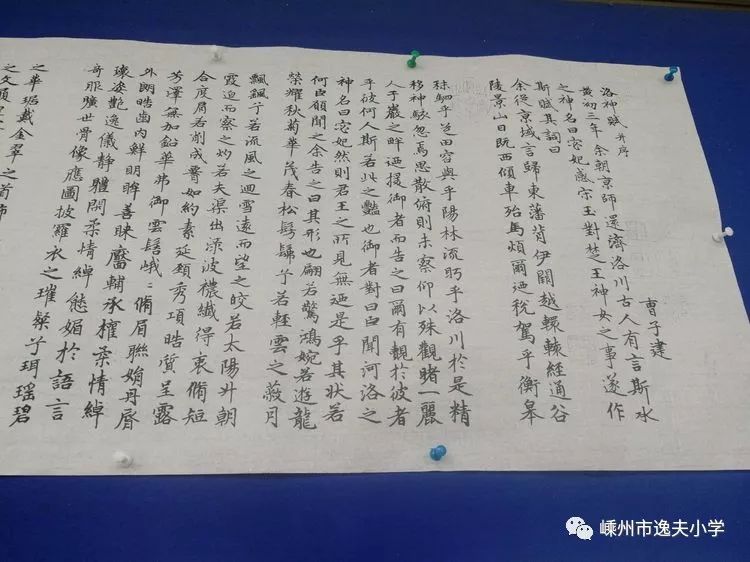 洛神賦 并序 曹子建
黃初三年余朝京師還濟洛川古人有言斯水
之神名曰宓妃感宗玉對楚王神女之事遂作
斯賦其詞曰
余從京域言歸東藩背伊闕越轘轅經通谷
陵景山日既西傾車殆馬煩爾迺稅駕乎衡皋
秣駟乎芝田容與乎陽林流眄乎洛川於是精
移神駭忽焉思散俯則未察仰以殊觀睹一麗
人于巖之畔迺援御者而告之曰爾有覿於彼者
乎彼何人斯若此之豔也御者對曰臣聞河洛之
神名曰宓妃然則君王之所見無迺是乎其狀若
何臣願聞之余告之曰其形也翩若驚鴻婉若遊龍
榮耀秋菊華茂春松髣髴兮若輕雲之蔽月
飄飖兮若流風之迴雪遠而望之皎若太陽升朝
霞迫而察之灼若夫渠出淥波穠纖得衷脩短
合度肩若削成腰如約素延頸秀項皓質呈露
芳澤無加鉛華弗御雲髻峨〻脩眉聯娟丹唇
外朗皓齒內鮮明眸善睞靨輔承權柔情綽
瓌姿艷逸儀靜體閑柔情綽態媚於語言
奇服曠世骨像應圖披羅衣之璀粲兮珥瑤碧
之華琚戴金翠之首飾
嵊州市逸夫小学